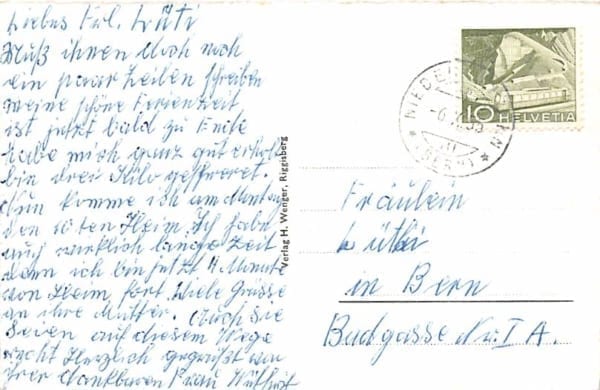 Liebes Frl. Lüti
Muß ihnen doch noch
ein paar Zeilen schreiben
meine schöne Ferienzeit
ist jetzt bald zu Ente
habe mich ganz gut erholt
bin drei Kilo
Nun komme ich am Montag
den 10ten Heim. Ich habe
auch wirklich lange Zeit
denn ich bin jetzt 4 Monate
von Heim fort. Viele Grüsse
an ihre Mutter. Auch Sie
seien auf diesem Wege
recht Herzlich gegrüsst von
ihrer dankbaren Frau
Verlag H. Wenger, Riggisberg
10 HELVETIA
(BERN)
Fräulein
Lüthi
in Bern
Badgasse No. I A.